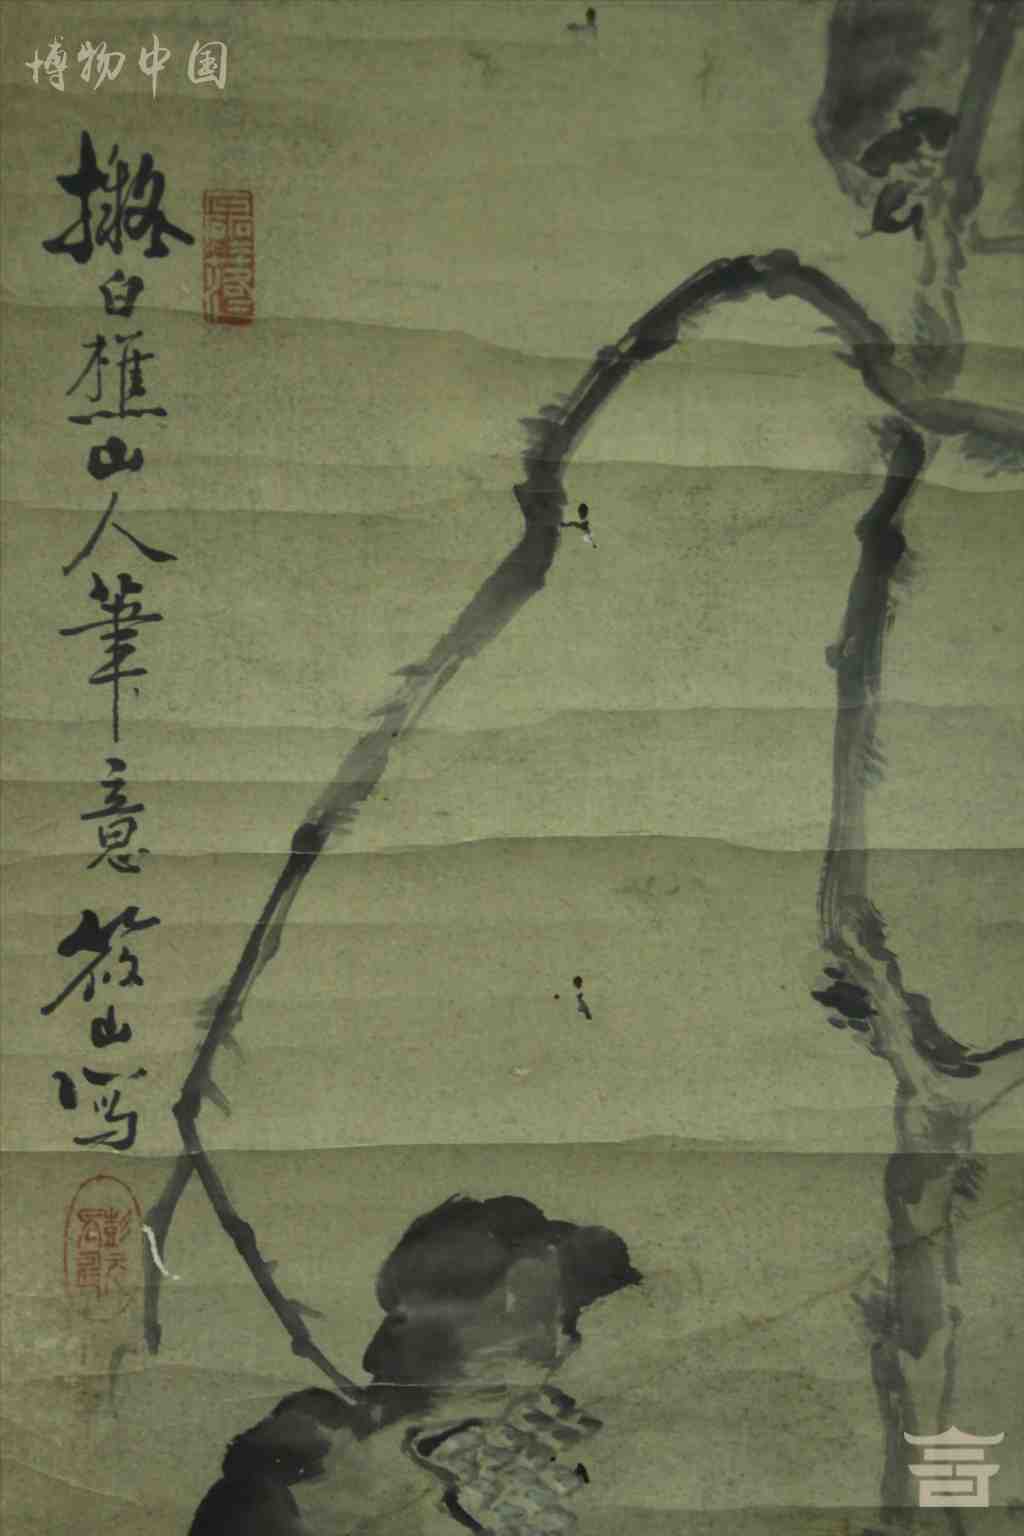 博物中国
擬白樵山人筆意 筱山寫